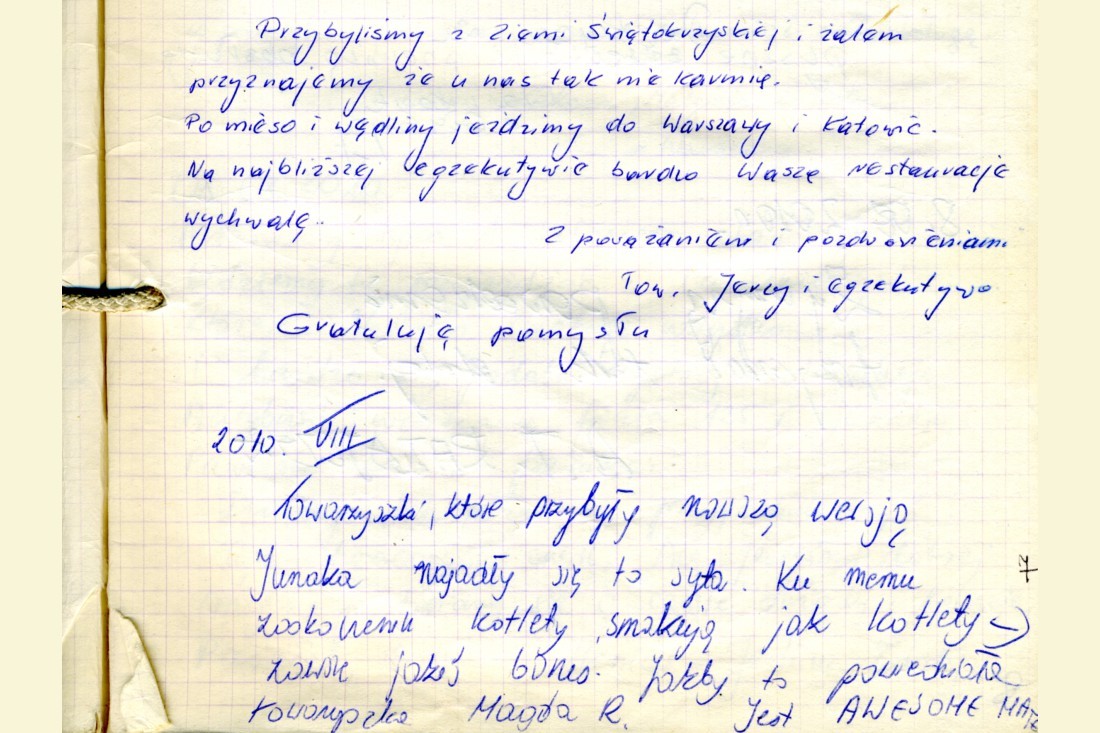 Przybyliśmy z Ziemi Świętokrzyskiej i żalem
przyznajemy że u nas tak nie karmią.
Po mięso i wędliny jeździmy do Warszawy i Katowic.
Na najbliższej egzekutywie bardzo Waszą restaurację
wychwalę.
Z poważaniem i pozdrowieniami
Tow. Jerzy i egzekutywa
Gratuluję pomysłu
2010. VIII
Towarzyszki, które przybyły nowszą wersją
Junaka najadły się to syta. Ku memu
kotlety smakują jak kotlety
jakiś bonus. Jakby to powiedziała
towarzyszka Magda R. Jest AWESOME
7